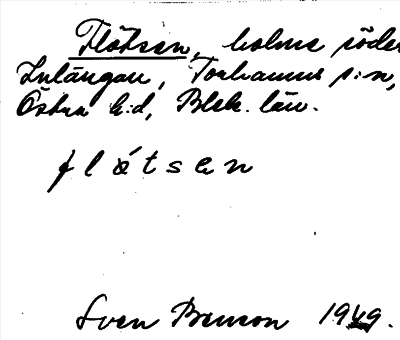 Flötsen, holme söder
Inlängan, Torhamns s:n,
Östra h:d, Blek. län.
flø´tsen
Sven Benson 1949.